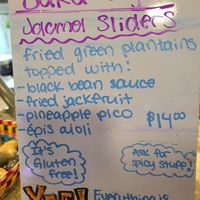 Jacmel Sliders
fried green plantains
topped with:
-black bean sauce
-fried jackfruit
-pineapple pico
-épis aioli
$14.00
It's
Gluten
free!
Ask for
spicy stuff!
Everything is